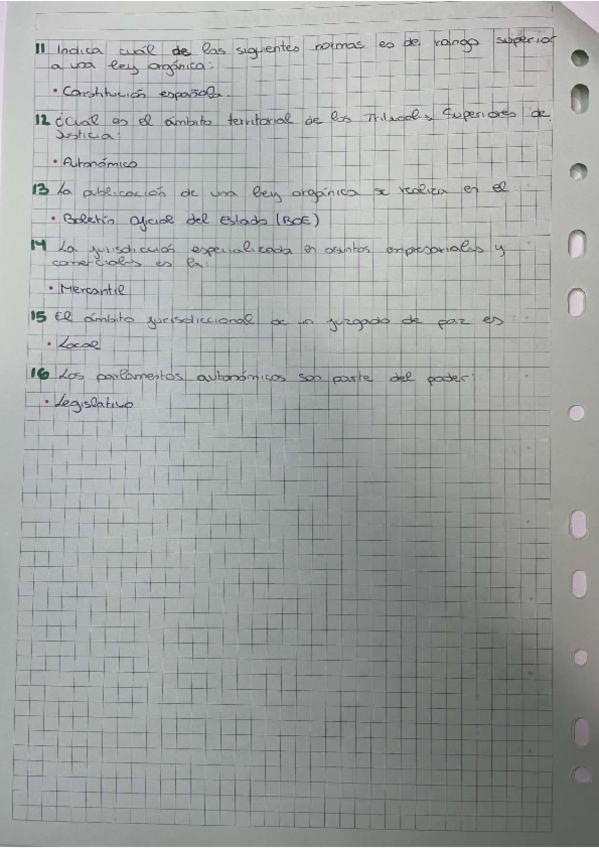 11 Indica cuál de las siguientes normas es de rango superior
a una ley orgánica:
• Constitución española.
12 ¿Cuál es el ámbito territorial de los Tribunales Superiores de
Justicia:
• Autonómico
13 La publicación de una ley orgánica se realiza en el
• Boletín oficial del Estado (BOE)
14 La jurisdicción especializada en asuntos empresariales y
comerciales es la:
• Mercantil
15 El ámbito jurisdiccional de un juzgado de paz es
• Local
16 Los parlamentos autonómicos son parte del poder:
• Legislativo